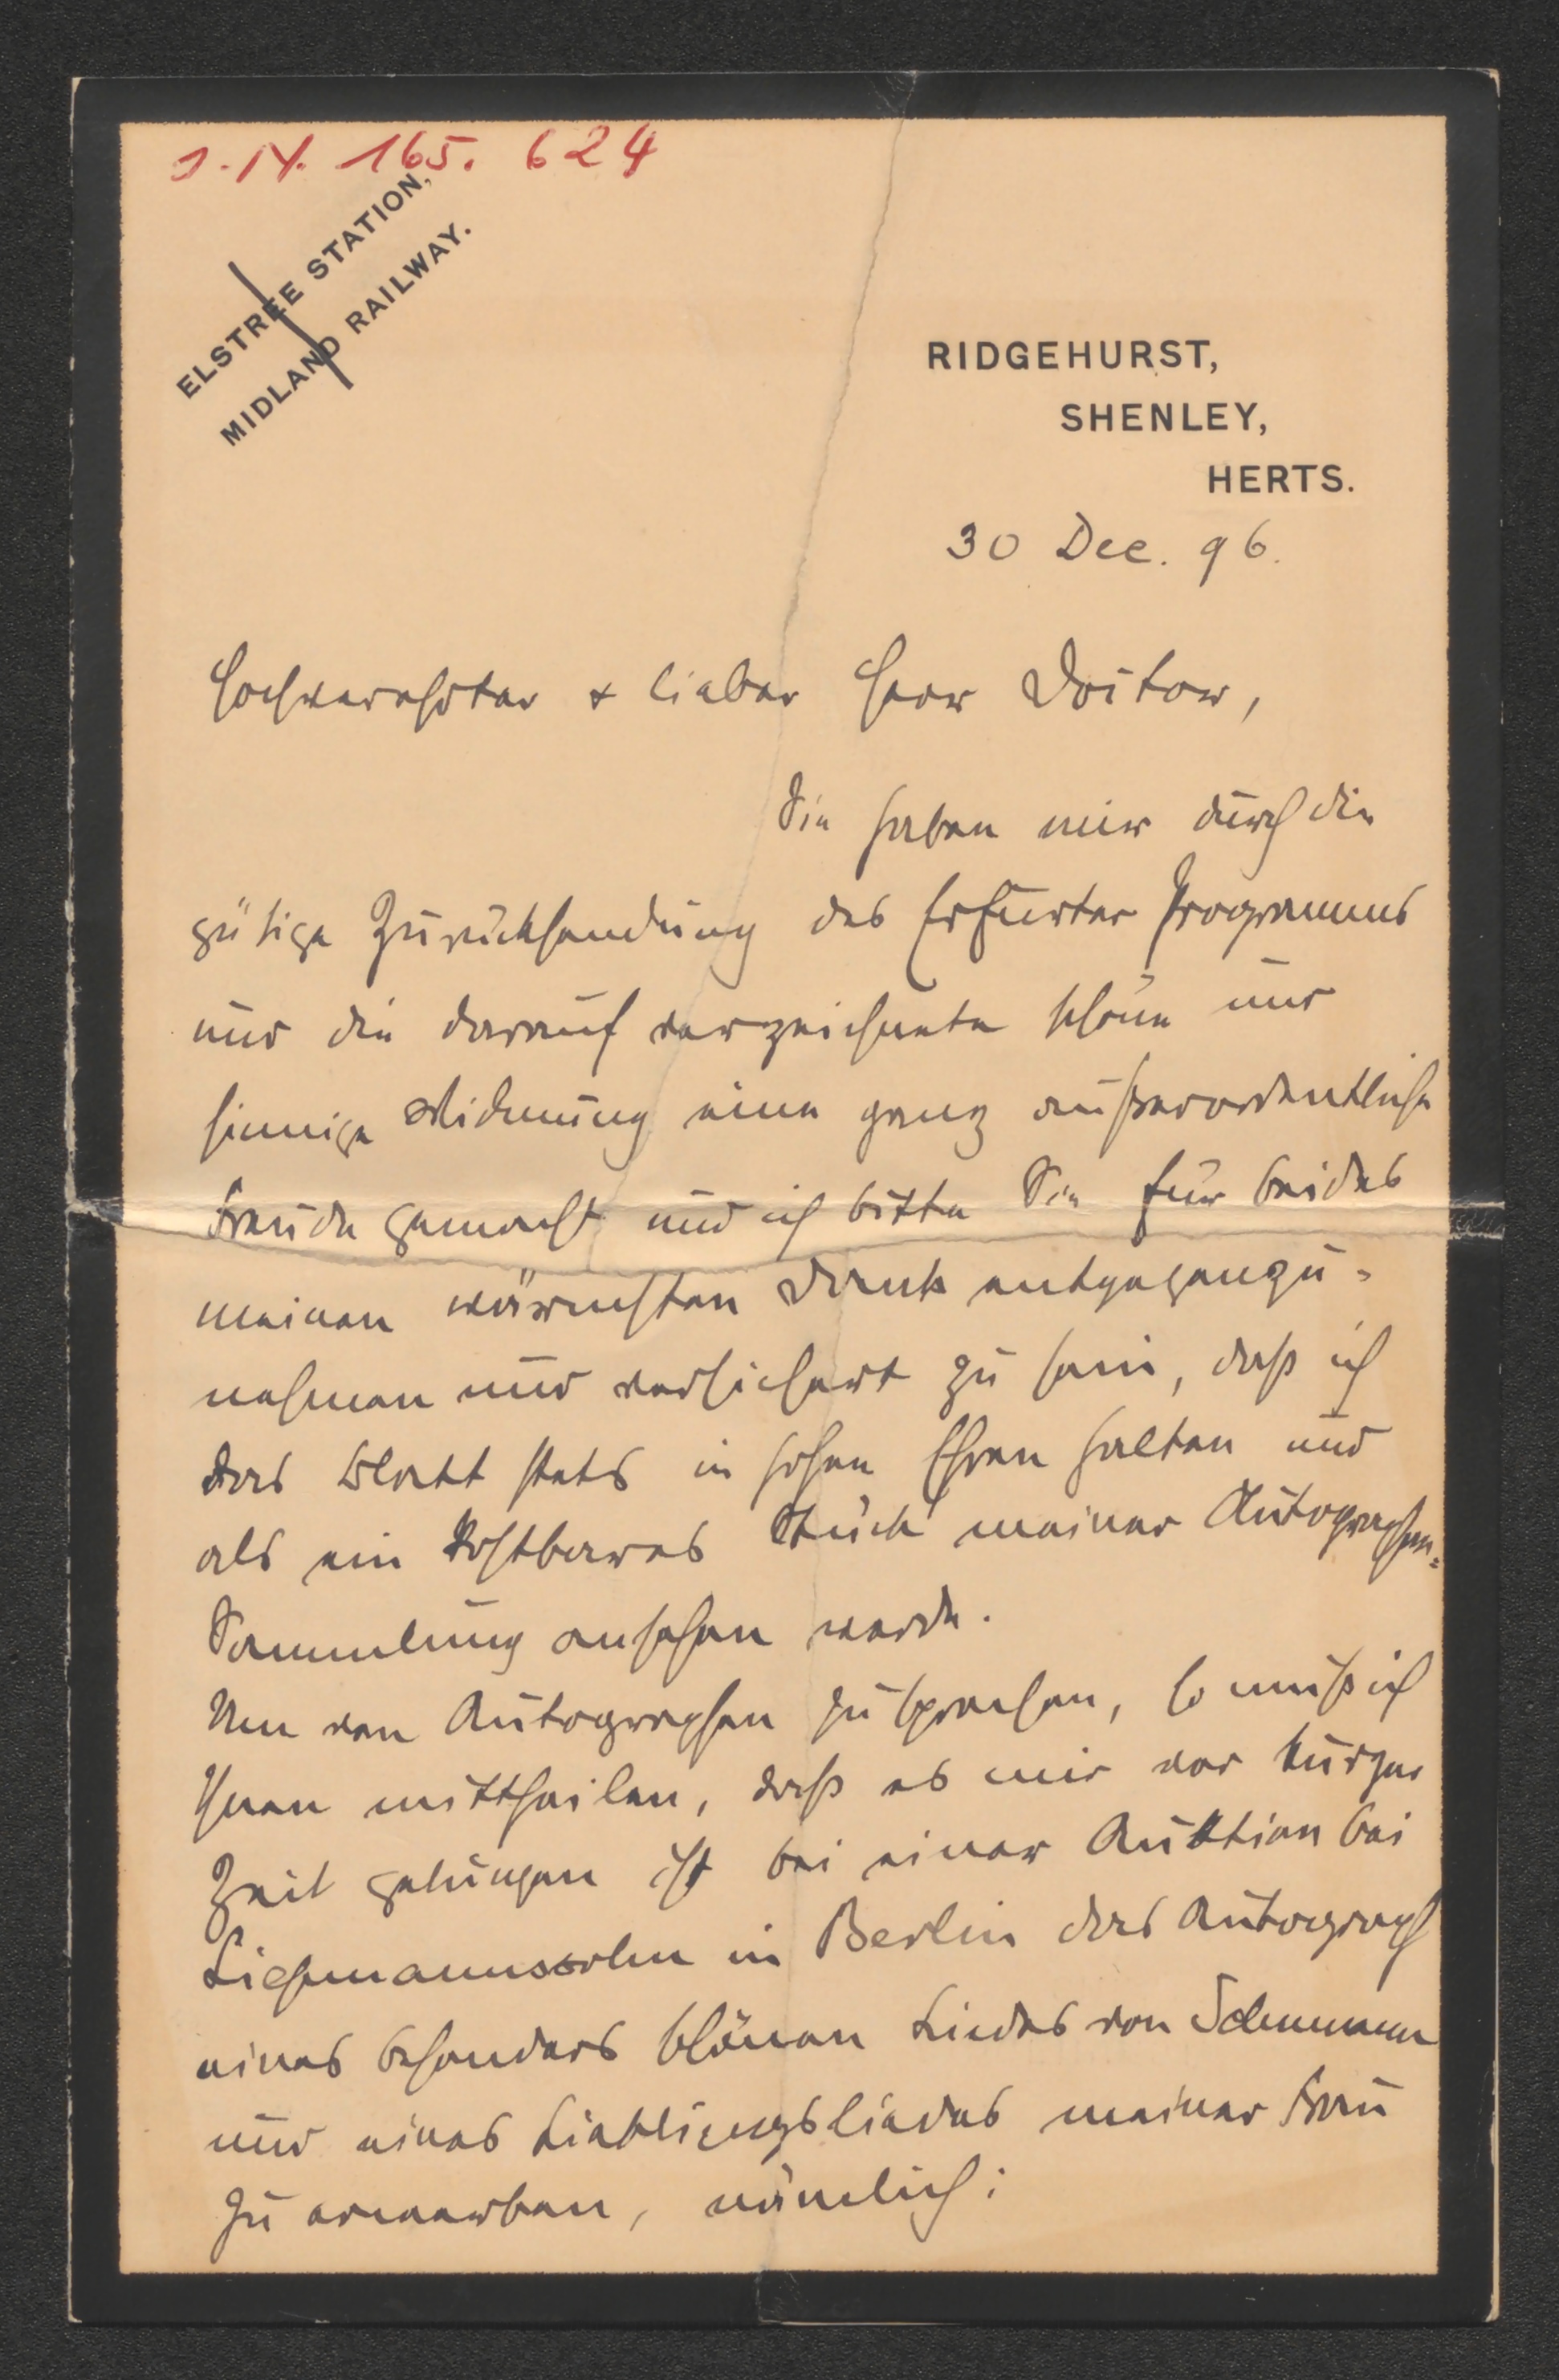 J.N. 165.624
ELSTREE STATION,
MIDLAND RAILWAY.
RIDGEHURST,
SHENLEY,
HERTS.
30 Dec. 96.
Hochverehrter & lieber Herr Doctor,
Sie haben mir durch die
gütige Zurücksendung des Erfurter Programms
und die darauf verzeichnete schöne und
sinnige Widmung eine ganz außerordentliche
Freude gemacht und ich bitte Sie für beides
meinen wärmsten Dank entgegenzu-
nehmen und versichert zu sein, daß ich
das Blatt stets in hohen Ehren halten und
als ein kostbares Stück meiner Autographen-
Sammlung ansehen werde.
Um von Autographen zu sprechen, so muß ich
Ihnen mittheilen, daß es mir vor kurzer
Zeit gelungen ist bei einer Auktion bei
Liepmannssohn in Berlin das Autograph
eines besonders schönen Liedes von Schumann
und eines Lieblingsliedes meiner Frau
zu erwerben, nämlich: